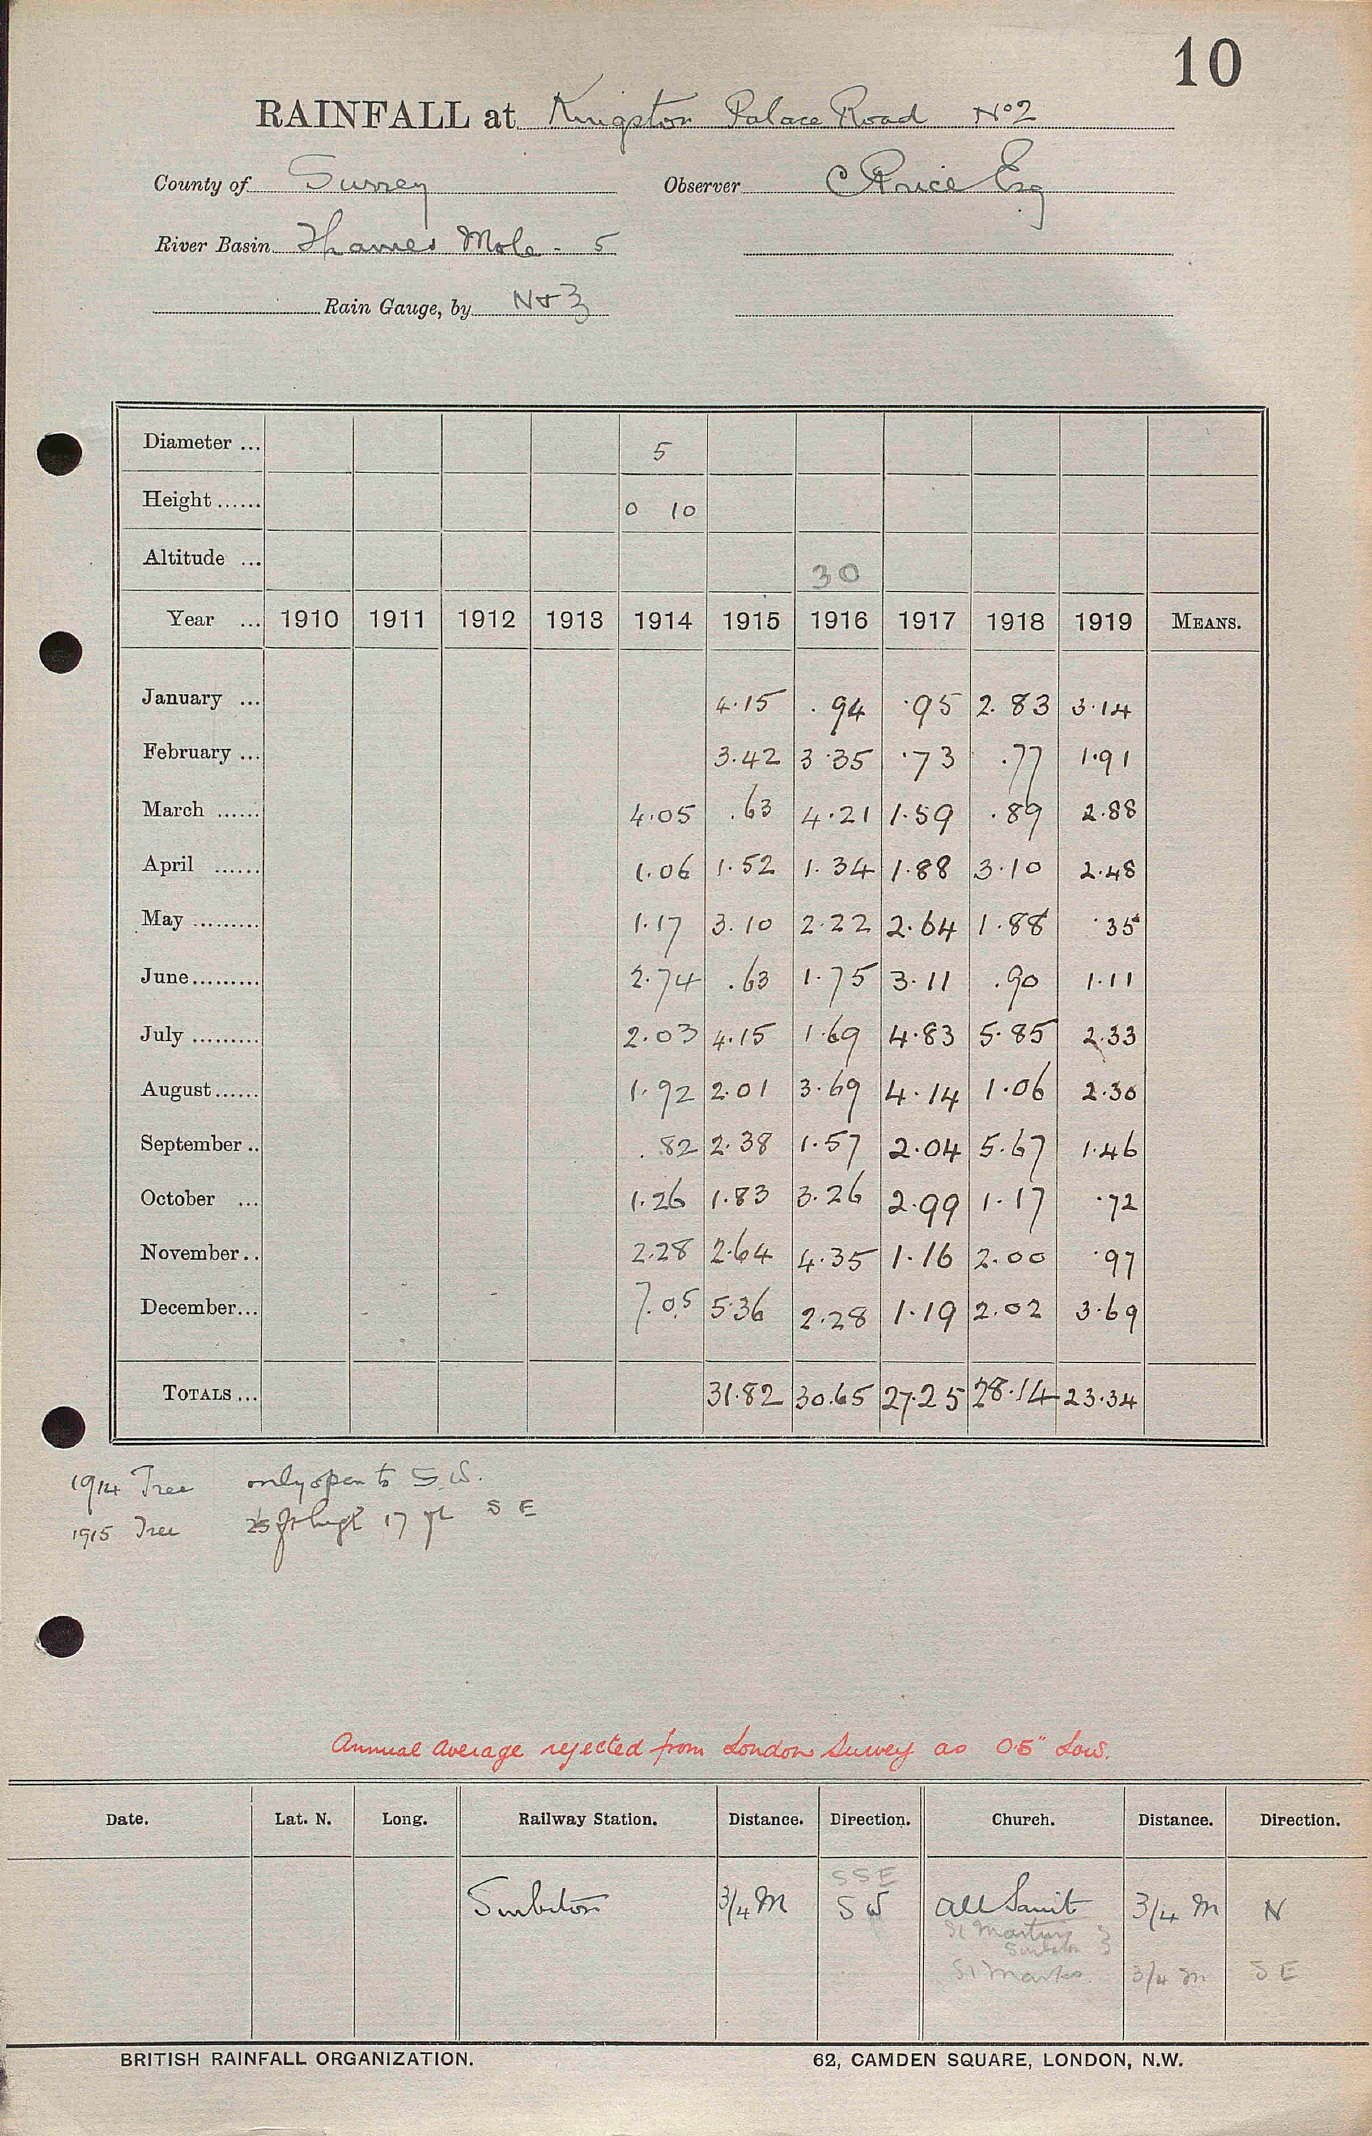 10
RAINFALL at Kingston Palace Road No 2
County of Surrey Observer C Price Esq
River Basin Thames Mole - 5
Rain Gauge, by N & Z
Diameter ... 5
Height ...... 0 10
Altitude ... 30
Year ... 1910 1911 1912 1913 1914 1915 1916 1917 1918 1919 MEANS.
January ... 4.15 .94 .95 2.83 3.14
February ... 3.42 3.35 .73 .77 1.91
March ...... 4.05 .63 4.21 1.59 .89 2.88
April ...... 1.06 1.52 1.34 1.88 3.10 2.48
May ......... 1.17 3.10 2.22 2.64 1.88 .35
June......... 2.74 .63 1.75 3.11 .90 1.11
July ......... 2.03 4.15 1.69 4.83 5.85 2.33
August...... 1.92 2.01 3.69 4.14 1.06 2.30
September .. .82 2.38 1.57 2.04 5.67 1.46
October ... 1.26 1.83 3.26 2.99 1.17 .72
November.. 2.28 2.64 4.35 1.16 2.00 .97
December... 7.05 5.36 2.28 1.19 2.02 3.69
TOTALS ... 31.82 30.65 27.25 28.14 23.34
1914 Tree only open to S.W.
1915 Tree 25 ft high 17 ft S E
Annual Average rejected from London Survey as 0.5" Low.
Date. Lat. N. Long. Railway Station. Distance. Direction. Church. Distance. Direction.
SSE
Surbiton 3/4 M SW All Saint 3/4 M N
St Martins
Surbiton
St Marks 3/4 m S E
BRITISH RAINFALL ORGANIZATION. 62, CAMDEN SQUARE, LONDON, N.W.